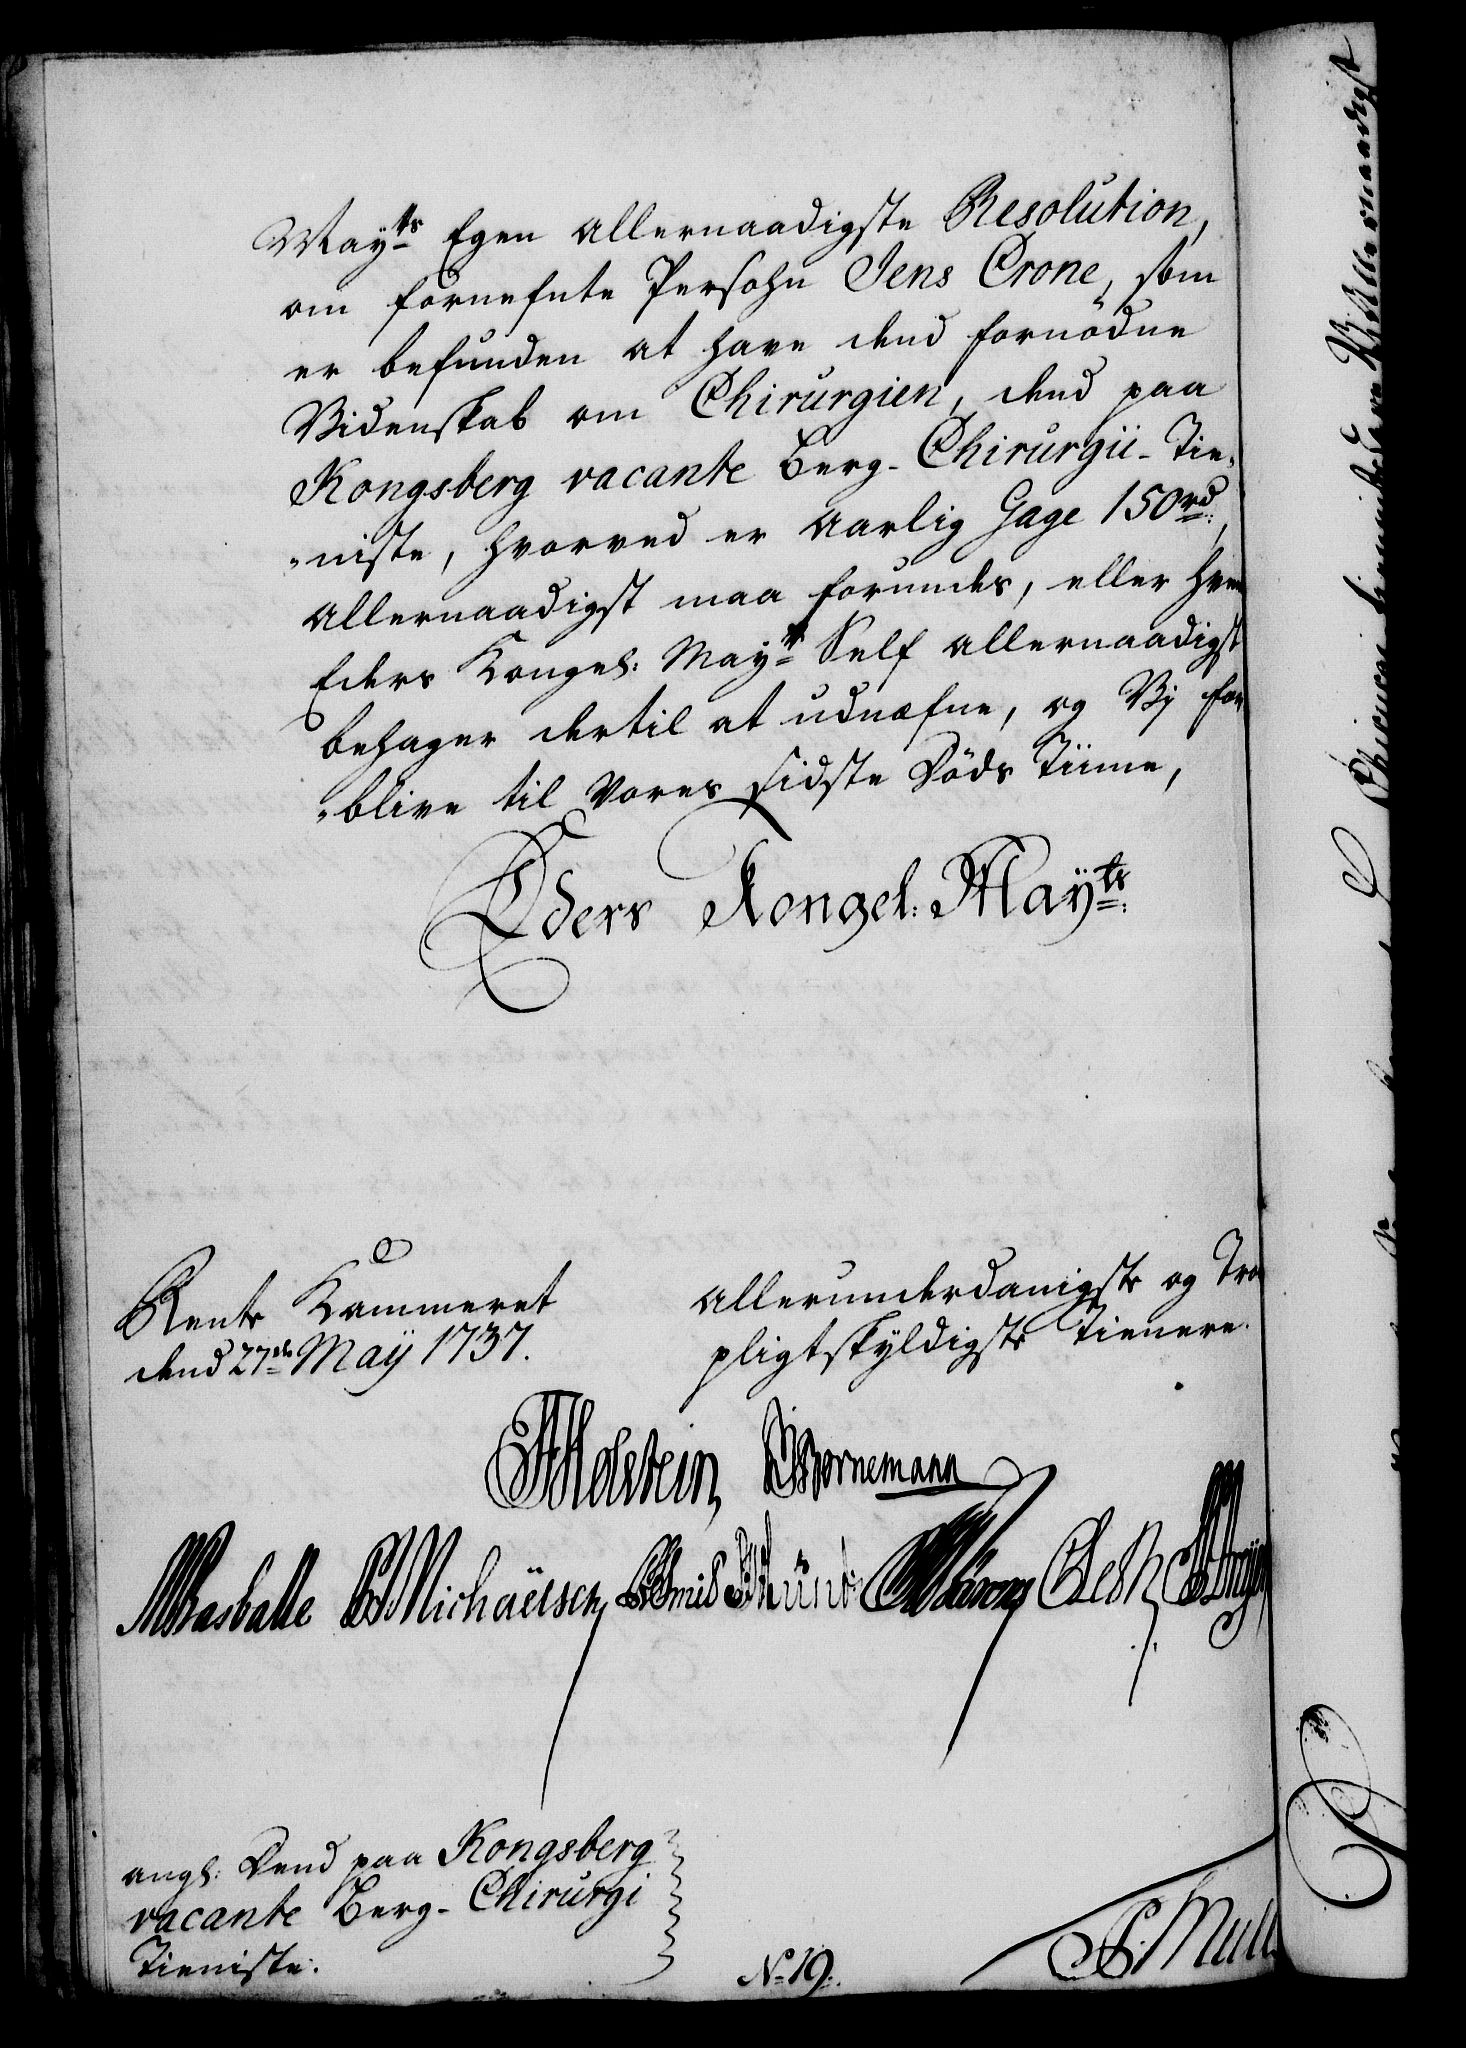 Mayts Egen allernaadigste Resolution,
om fornefnte Persohn Jens Crone, som
er befunden at have dend fornødne
Videnskab om Chirurgien, dend paa
Kongsberg vacante Berg-Chirurgii-Tie-
niste, hvorved er aarlig Gage 150 rd:,
allernaadigst maa forundes, eller hvem
Eders Kongel: Mayts Self allernaadigst
behager dertil at udnæfne, og Vi for
blive til Vores sidste Døds Tiime,
Eders Kongel: Mayts:
Rente Kammeret
dend 27de May 1737.
allerunderdanigste og Tro
pligtskyldigste Tienere.
Holstein Bornemann
Basballe Michaëlsen
angl: Dend paa Kongsberg
vacante Berg-Chirurgi
Tieniste.
No 19.